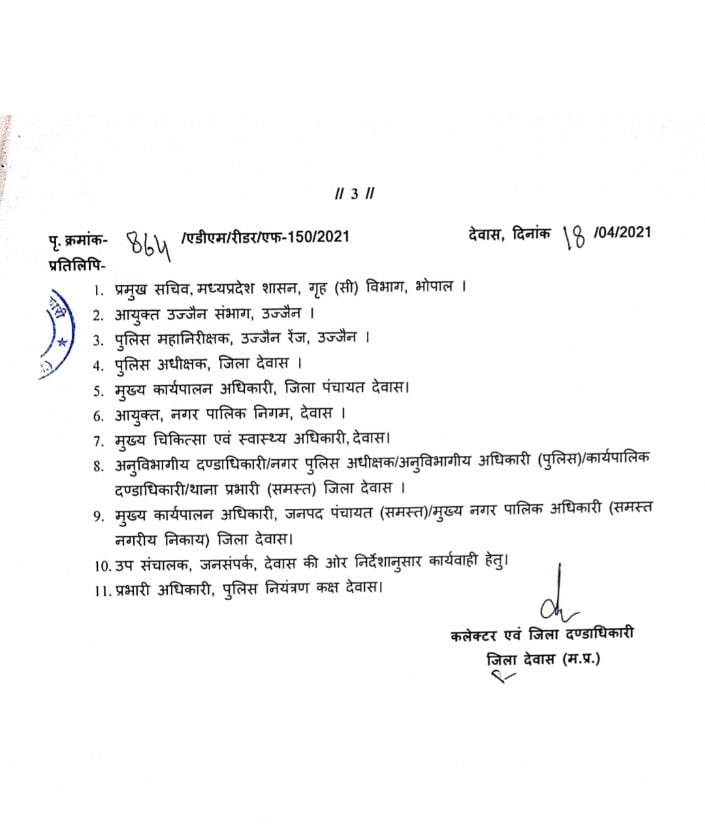 // 3 //
पृ. क्रमांक- 864 /एडीएम/रीडर/एफ-150/2021 देवास, दिनांक 18 /04/2021
प्रतिलिपि-
1. प्रमुख सचिव, मध्यप्रदेश शासन, गृह (सी) विभाग, भोपाल ।
2. आयुक्त उज्जैन संभाग, उज्जैन ।
3. पुलिस महानिरीक्षक, उज्जैन रेंज, उज्जैन ।
4. पुलिस अधीक्षक, जिला देवास ।
5. मुख्य कार्यपालन अधिकारी, जिला पंचायत देवास।
6. आयुक्त, नगर पालिक निगम, देवास ।
7. मुख्य चिकित्सा एवं स्वास्थ्य अधिकारी, देवास।
8. अनुविभागीय दण्डाधिकारी/नगर पुलिस अधीक्षक/अनुविभागीय अधिकारी (पुलिस)/कार्यपालिक
दण्डाधिकारी/थाना प्रभारी (समस्त) जिला देवास ।
9. मुख्य कार्यपालन अधिकारी, जनपद पंचायत (समस्त)/मुख्य नगर पालिक अधिकारी (समस्त
नगरीय निकाय) जिला देवास।
10. उप संचालक, जनसंपर्क, देवास की ओर निर्देशानुसार कार्यवाही हेतु।
11. प्रभारी अधिकारी, पुलिस नियंत्रण कक्ष देवास।
कलेक्टर एवं जिला दण्डाधिकारी
जिला देवास (म.प्र.)